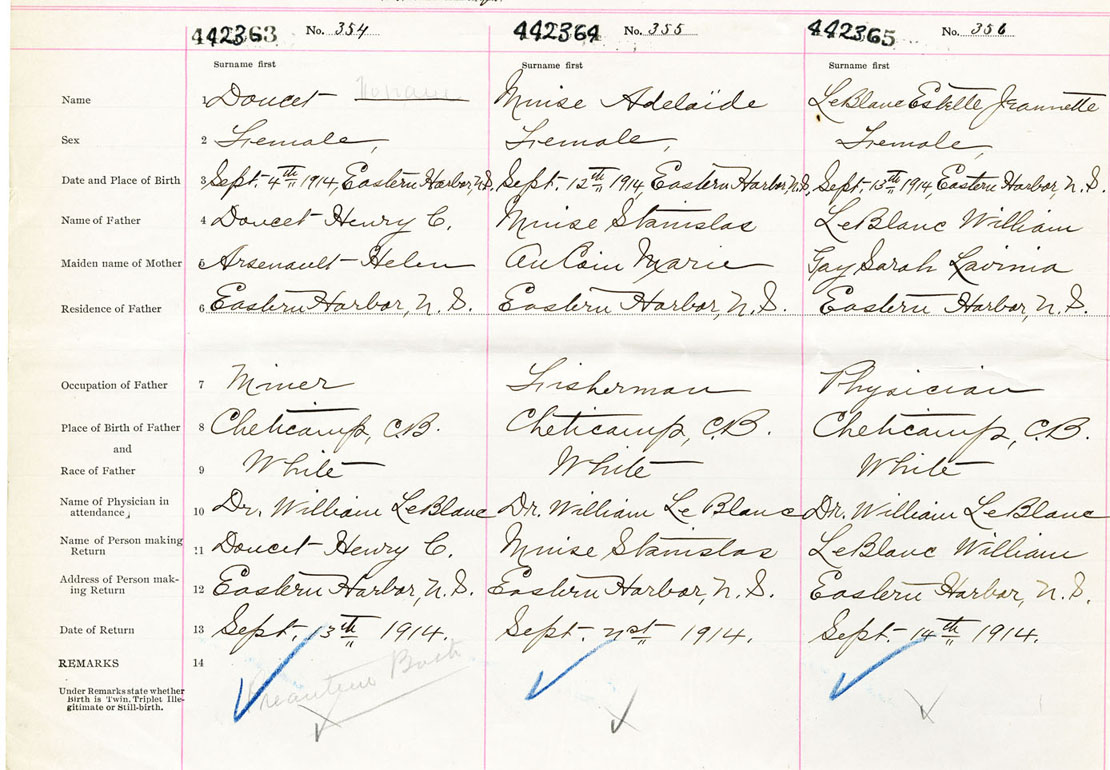 442363 No. 354 442364 No. 355 442365 No. 356
Surname first Surname first Surname first
Name 1 Doucet Muise Adelaïde LeBlanc Estelle Jeannette
Sex 2 Female, Female, Female,
Date and Place of Birth 3 Sept. 4th 1914, Eastern Harbor, N.S. Sept. 12th 1914, Eastern Harbor, N.S. Sept. 13th 1914, Eastern Harbor, N.S.
Name of Father 4 Doucet Henry C. Muise Stanislas LeBlanc William
Maiden name of Mother 5 Arsenault Helen AuCoin Marie Gay Sarah Lavinia
Residence of Father 6 Eastern Harbor, N.S. Eastern Harbor, N.S. Eastern Harbor, N.S.
Occupation of Father 7 Miner Fisherman Physician
Place of Birth of Father 8 Cheticamp, C.B. Cheticamp, C.B. Cheticamp, C.B.
and
Race of Father 9 White White White
Name of Physician in
attendance, 10 Dr. William LeBlanc Dr. William LeBlanc Dr. William LeBlanc
Name of Person making
Return 11 Doucet Henry C. Muise Stanislas LeBlanc William
Address of Person mak-
ing Return 12 Eastern Harbor, N.S. Eastern Harbor, N.S. Eastern Harbor, N.S.
Date of Return 13 Sept. 13th 1914. Sept. 21st 1914. Sept. 14th 1914.
REMARKS 14
Under Remarks state whether
Birth is Twin, Triplet Ille-
gitimate or Still-birth.